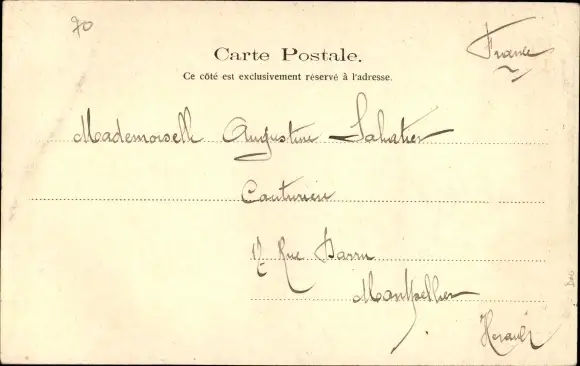 70
France
Carte Postale.
Ce côté est exclusivement réservé à l'adresse.
Mademoiselle Augustine Sabatier
Couturière
12 Rue
Montpellier
Herault